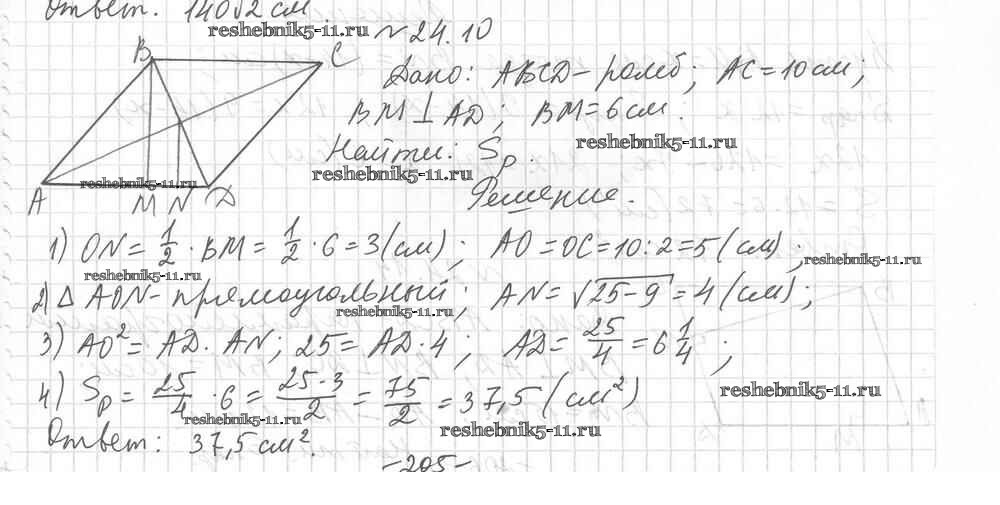 Ответ. 140√2 см
reshebnik5-11.ru
№24.10
B C
Дано: ABCD - ромб; AC = 10 см;
BM ⊥ AD; BM = 6 см.
reshebnik5-11.ru
Найти: Sр.
reshebnik5-11.ru
reshebnik5-11.ru
Решение.
A M N D
1) ON = 1/2 · BM = 1/2 · 6 = 3 (см); AO = OC = 10 : 2 = 5 (см);
reshebnik5-11.ru
reshebnik5-11.ru
2) △ AON - прямоугольный; AN = √25-9 = 4 (см);
reshebnik5-11.ru
3) AO² = AD · AN; 25 = AD · 4; AD = 25/4 = 6 1/4;
4) Sр = 25/4 · 6 = 25·3/2 = 75/2 = 37,5 (см²)
reshebnik5-11.ru
reshebnik5-11.ru
reshebnik5-11.ru
Ответ: 37,5 см².
-205-